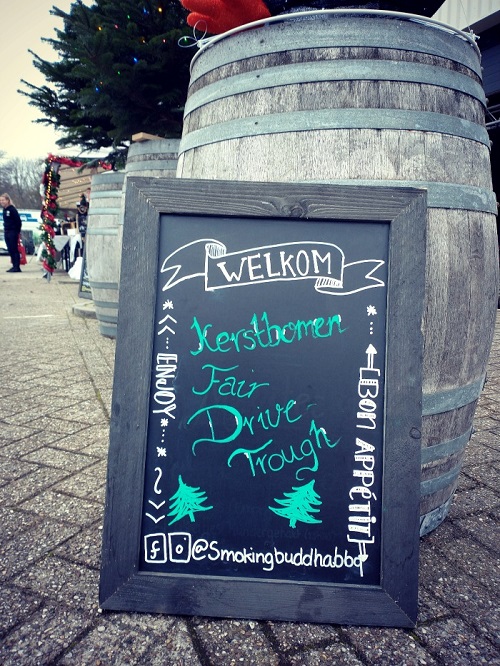 WELKOM
Kerstbomen
Fair
Drive-
Trough
ENJOY
BON APPÉTIT
@Smokingbuddhabbq